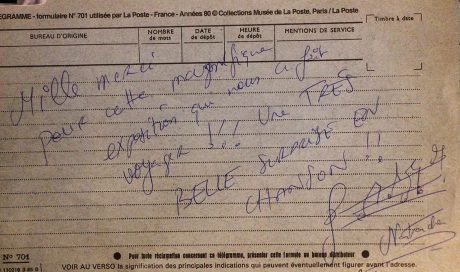 EGRAMME - formulaire N° 701 utilisée par La Poste - France - Années 80 © Collections Musée de La Poste, Paris / La Poste
Timbre à date
BUREAU D'ORIGINE
NOMBRE de mots
DATE de dépôt
HEURE de dépôt
MENTIONS DE SERVICE
Mille merci
pour cette magnifique
exposition qui nous a fait
voyager !!! Une TRÈS
BELLE SURPRISE EN
CHANSON !!
N° 701
Pour toute réclamation concernant ce télégramme, présenter cette formule au bureau distributeur
VOIR AU VERSO la signification des principales indications qui peuvent éventuellement figurer avant l'adresse.